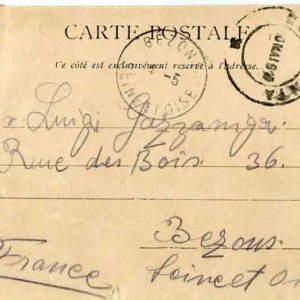 CARTE POSTALE
Ce côté est exclusivement réservé à l'adresse.
BEZONS
SEINE-ET-OISE
Luigi
Rue des Bois 36.
Bezons
Seine et O
France